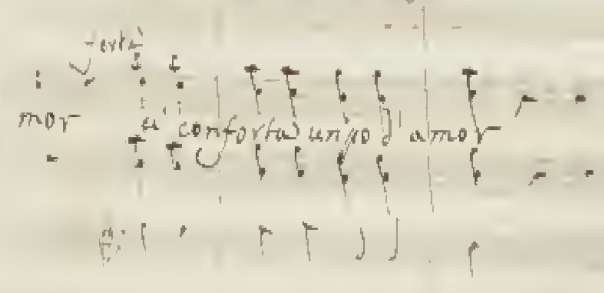 forte
mor u' conforta un po d' amor